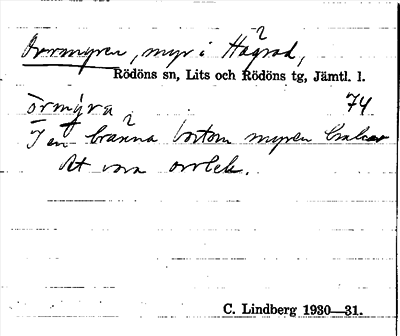 Orrmyren, myr i Hågrad,
Rödöns sn, Lits och Rödöns tg, Jämtl. l.
örmýra 74
I en bränna bortom myren brukar
det vara orrlek.
C. Lindberg 1930—31.